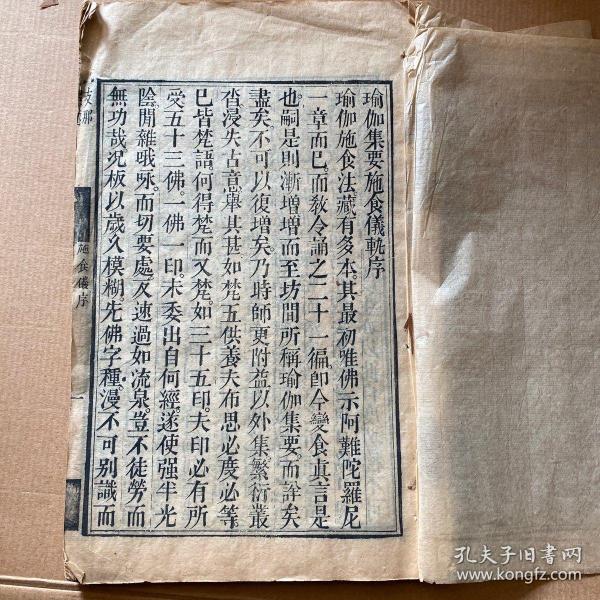 瑜伽集要施食儀軌序
瑜伽施食法藏有多本。其最初唯佛示阿難陀羅尼
一章而已。而教令誦之二十一徧。卽今變食眞言是
也。嗣是則漸增增而至坊間所稱瑜伽集要。而詳矣
盡矣。不可以復增矣。乃時師更附益以外集。繁衍叢
沓。浸失古意。舉其甚。如梵五供養。夫布思必度必等。
已皆梵語。何得梵而又梵。如三十五印。夫印必有所
受。五十三佛一佛一印。未委出自何經。遂使强半光
陰。閒雜哦咏。而切要處。反速過如流泉。豈不徒勞而
無功哉。況板以歲久模糊。先佛字種。漫不可别識。而
施食儀序
一
孔夫子旧书网
www.kongfz.com